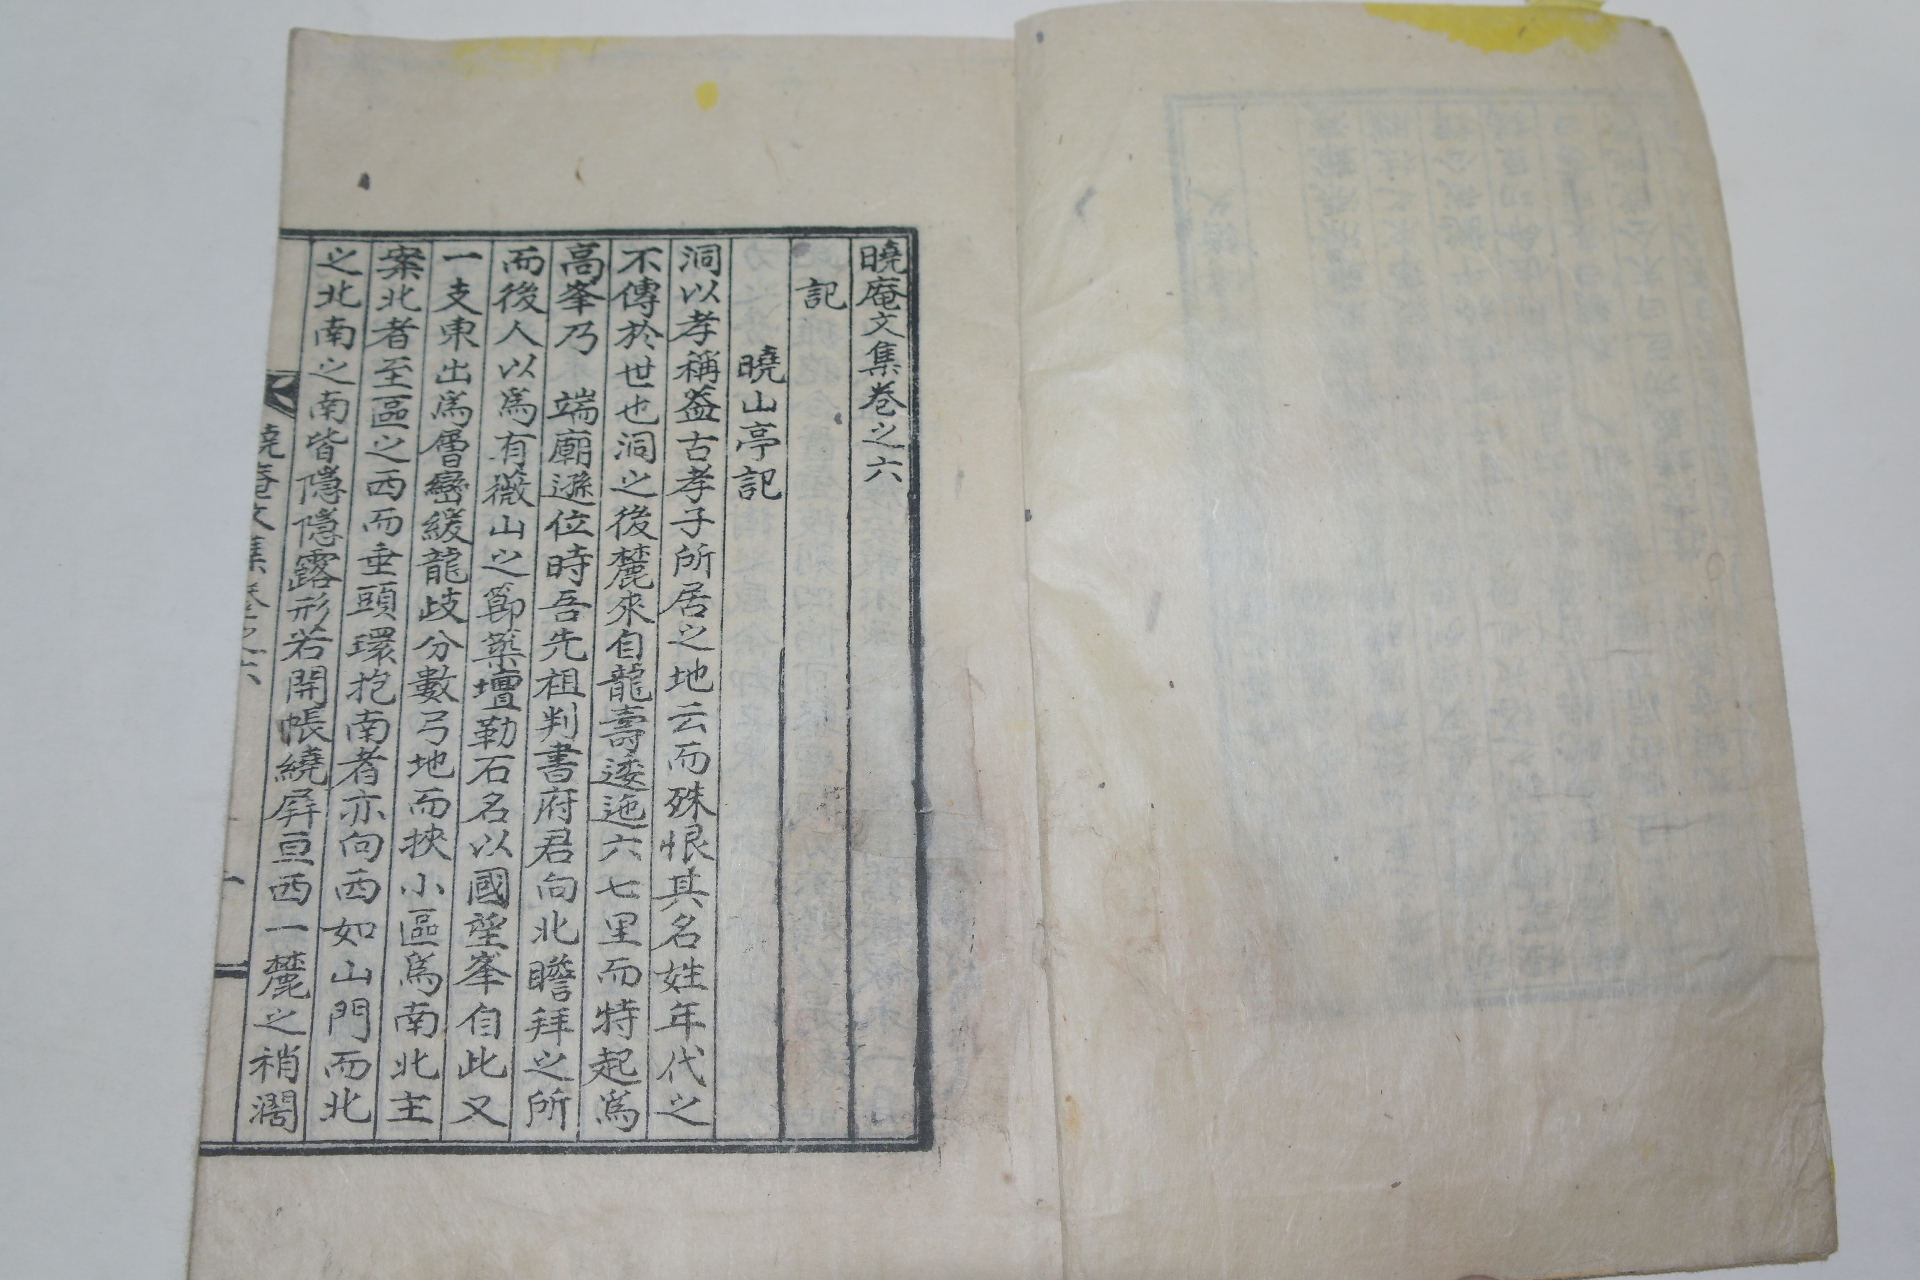 曉庵文集卷之六
記
曉山亭記
洞以孝稱盖古孝子所居之地云而殊恨其名姓年代之
不傳於世也洞之後麓來自龍壽逶迤六七里而特起爲
高峯乃 端廟遜位時吾先祖判書府君向北瞻拜之所
而後人以爲有薇山之節築壇勒石名以國望峯自此又
一支東出爲層巒緩龍歧分數弓地而挾小區爲南北主
案北者至區之西而垂頭環抱南者亦向西如山門而北
之北南之南皆隱隱露形若開帳繞屛亘西一麓之稍濶
曉庵文集卷之六
一